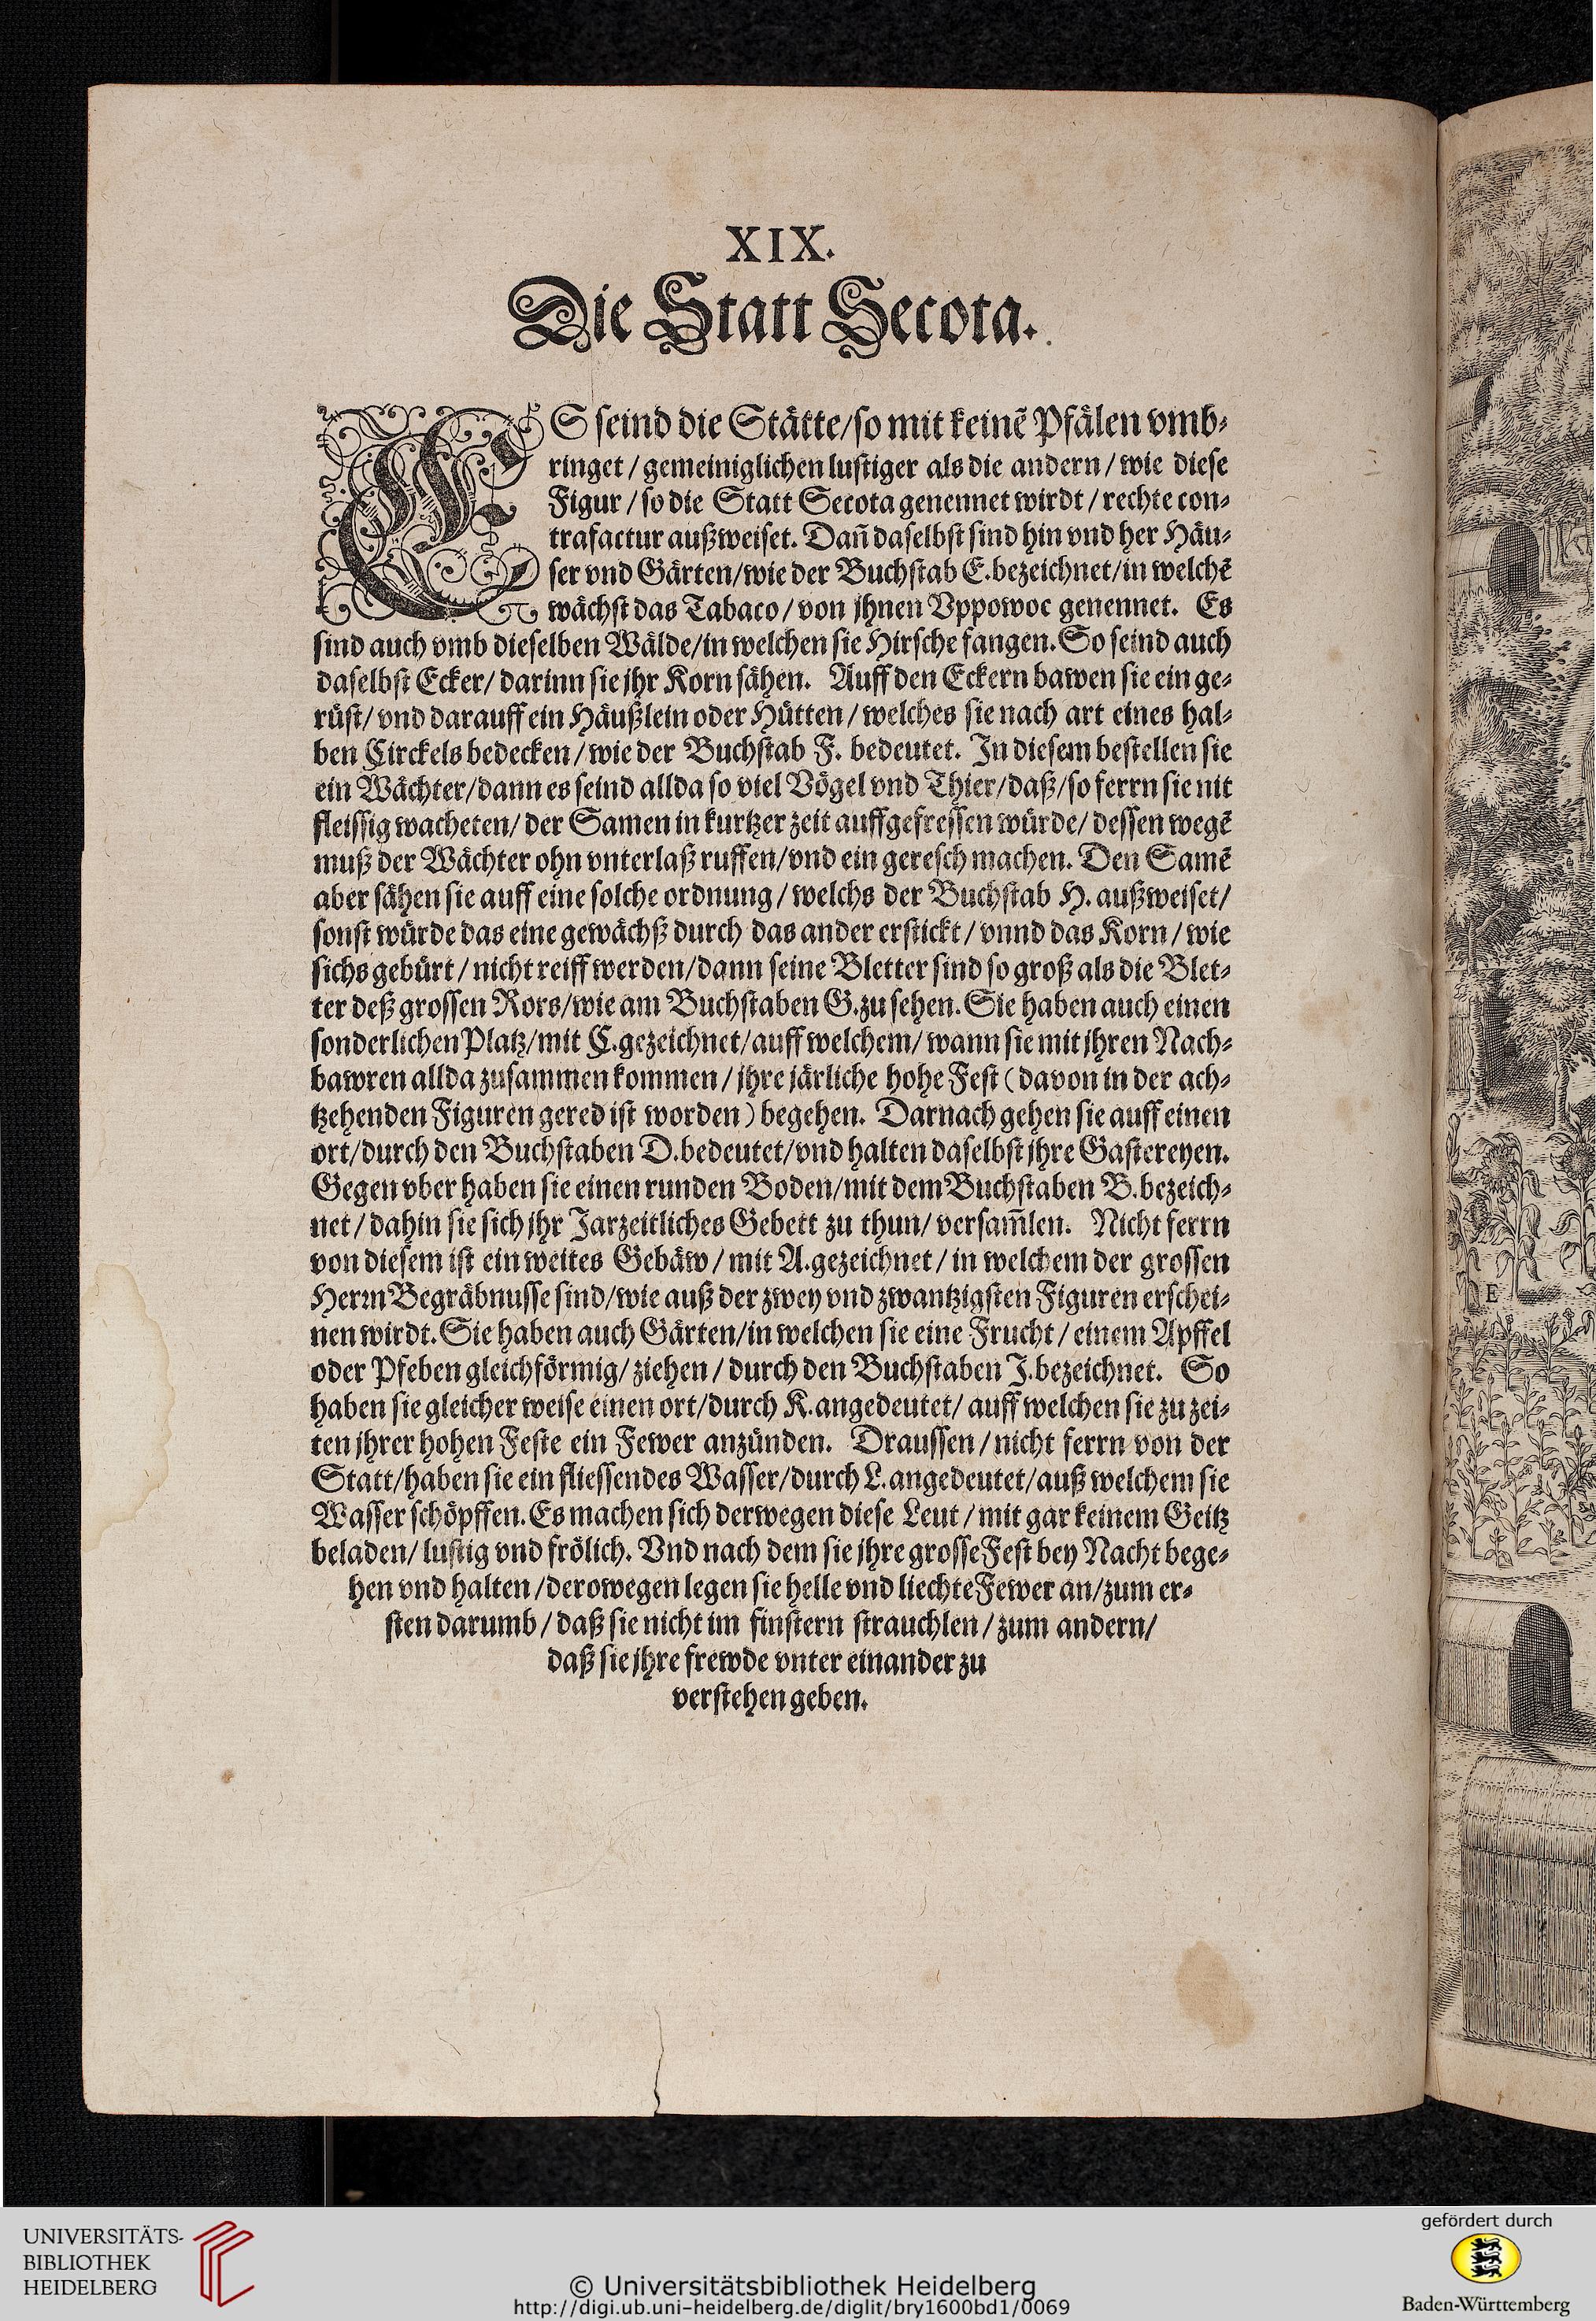 XIX.
Die Statt Secota.
ES seind die Stätte/so mit keinẽ Pfälen vmb-
ringet / gemeiniglichen lustiger als die andern / wie diese
Figur / so die Statt Secota genennet wirdt / rechte con-
trafactur außweiset. Dañ daselbst sind hin vnd her Häu-
ser vnd Gärten/wie der Buchstab E. bezeichnet/in welchẽ
wächst das Tabaco / von jhnen Vppowoc genennet. Es
sind auch vmb dieselben Wälde/in welchen sie Hirsche fangen. So seind auch
daselbst Ecker/ darinn sie jhr Korn sähen. Auff den Eckern bawen sie ein ge-
rüst/ vnd darauff ein Häußlein oder Hütten / welches sie nach art eines hal-
ben Circkels bedecken / wie der Buchstab F. bedeutet. In diesem bestellen sie
ein Wächter/dann es seind allda so viel Vögel vnd Thier/daß/so ferrn sie nit
fleissig wacheten/ der Samen in kurtzer zeit auffgefressen würde/ dessen wegẽ
muß der Wächter ohn vnterlaß ruffen/vnd ein geresch machen. Den Samẽ
aber sähen sie auff eine solche ordnung / welchs der Buchstab H. außweiset/
sonst würde das eine gewächß durch das ander erstickt / vnnd das Korn / wie
sichs gebürt / nicht reiff werden/dann seine Bletter sind so groß als die Blet-
ter deß grossen Rors/wie am Buchstaben G. zu sehen. Sie haben auch einen
sonderlichen Platz/mit C. gezeichnet/auff welchem/ wann sie mit jhren Nach-
bawren allda zusammen kommen / jhre järliche hohe Fest (davon in der ach-
tzehenden Figuren gered ist worden) begehen. Darnach gehen sie auff einen
ort/durch den Buchstaben D. bedeutet/vnd halten daselbst jhre Gastereyen.
Gegen vber haben sie einen runden Boden/mit dem Buchstaben B. bezeich-
net / dahin sie sich jhr Jarzeitliches Gebett zu thun/ versam̃len. Nicht ferrn
von diesem ist ein weites Gebäw / mit A. gezeichnet / in welchem der grossen
Herrn Begräbnusse sind/wie auß der zwey vnd zwantzigsten Figuren erschei-
nen wirdt. Sie haben auch Gärten/in welchen sie eine Frucht / einem Apffel
oder Pfeben gleichförmig/ ziehen / durch den Buchstaben I. bezeichnet. So
haben sie gleicher weise einen ort/durch K. angedeutet/ auff welchen sie zu zei-
ten jhrer hohen Feste ein Fewer anzünden. Draussen / nicht ferrn von der
Statt/haben sie ein fliessendes Wasser/durch L. angedeutet/auß welchem sie
Wasser schöpffen. Es machen sich derwegen diese Leut / mit gar keinem Geitz
beladen/ lustig vnd frölich. Vnd nach dem sie jhre grosse Fest bey Nacht bege-
hen vnd halten /derowegen legen sie helle vnd liechte Fewer an/zum er-
sten darumb / daß sie nicht im finstern strauchlen / zum andern/
daß sie jhre frewde vnter einander zu
verstehen geben.
E
UNIVERSITÄTS-
BIBLIOTHEK
HEIDELBERG
© Universitätsbibliothek Heidelberg
http://digi.ub.uni-heidelberg.de/diglit/bry1600bd1/0069
gefördert durch
Baden-Württemberg